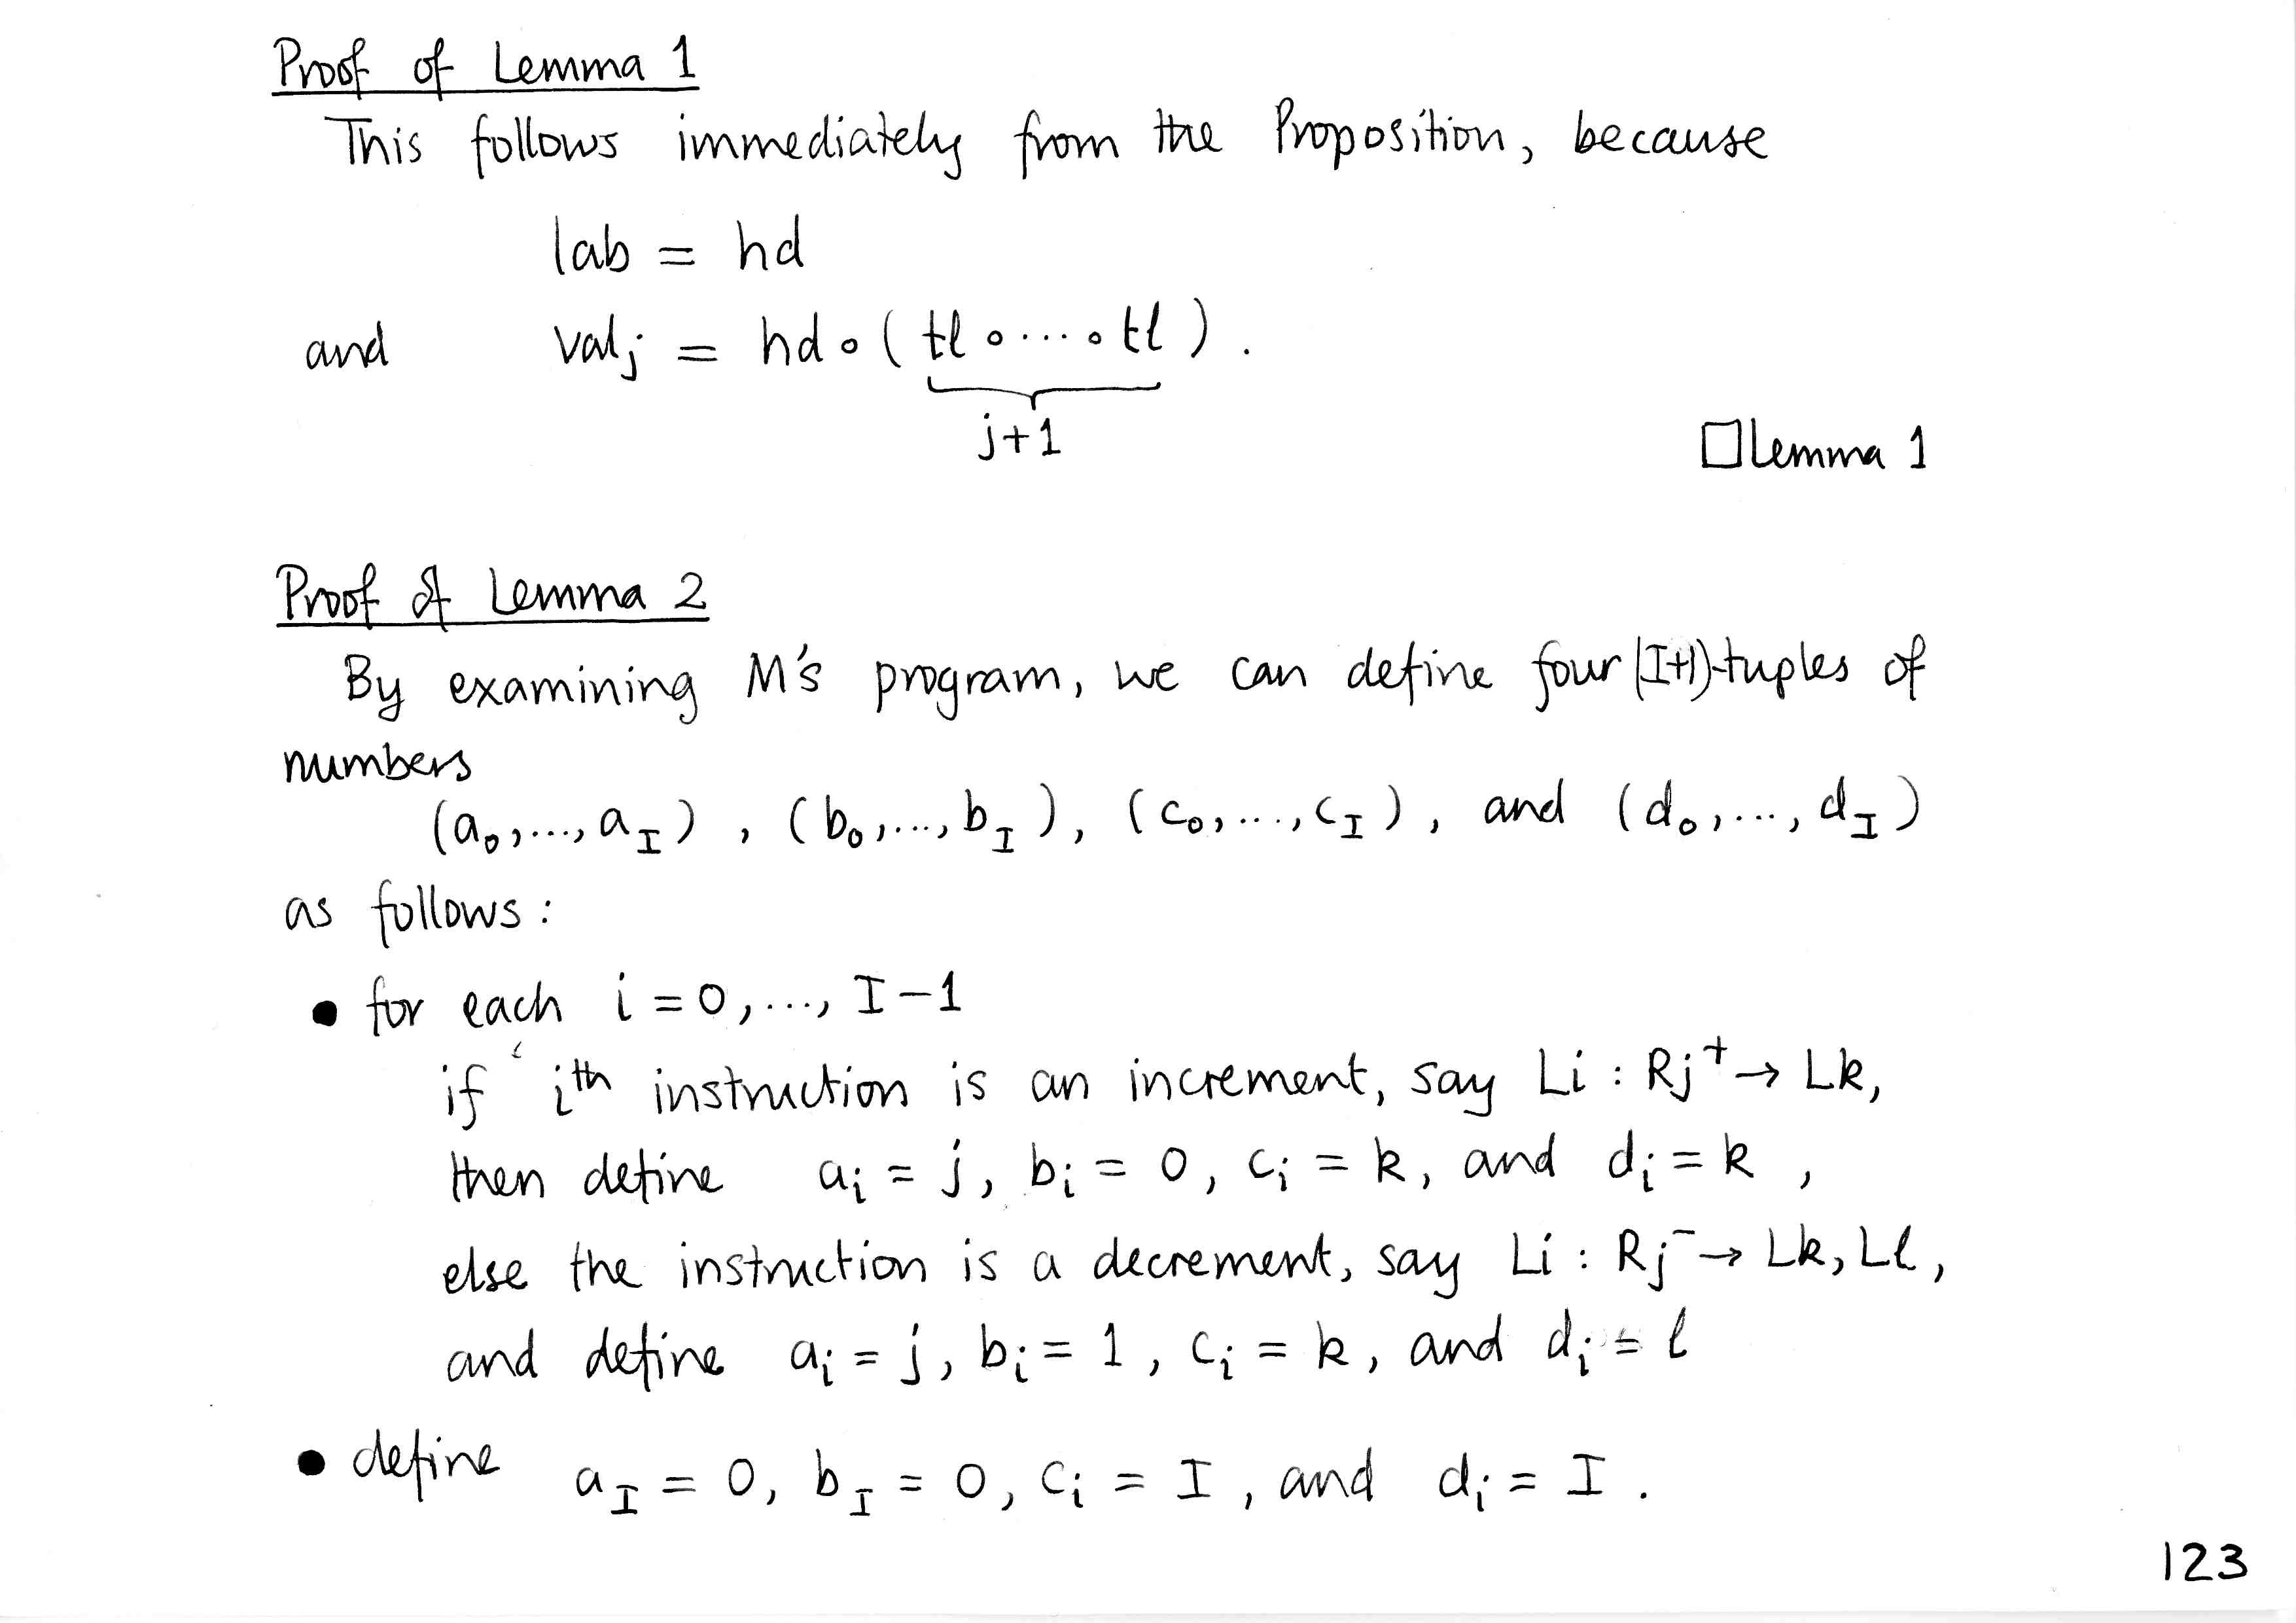 Proof of Lemma 1
This follows immediately from the Proposition, because
lab = hd
and valj = hd ∘ ( tl ∘ ... ∘ tl ) .
j+1
□ Lemma 1
Proof of Lemma 2
By examining M's program, we can define four (I+1)-tuples of
numbers
(a₀,...,a_I) , (b₀,...,b_I), (c₀,...,c_I), and (d₀,...,d_I)
as follows:
• for each i = 0,..., I-1
if iᵗʰ instruction is an increment, say Li : Rj⁺ → Lk,
then define aᵢ = j, bᵢ = 0, cᵢ = k, and dᵢ = k ,
else the instruction is a decrement, say Li : Rj⁻ → Lk, Ll,
and define aᵢ = j, bᵢ = 1, cᵢ = k, and dᵢ = l
• define a_I = 0, b_I = 0, cᵢ = I, and dᵢ = I .
123